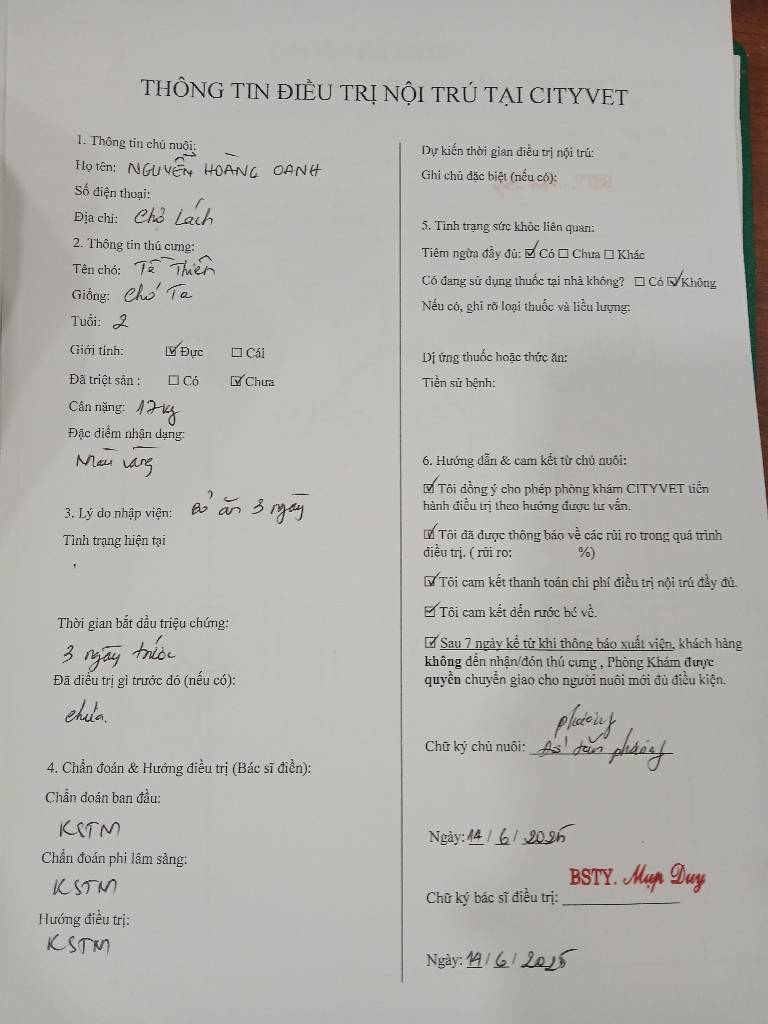 THÔNG TIN ĐIỀU TRỊ NỘI TRÚ TẠI CITYVET
1. Thông tin chủ nuôi:
Họ tên: NGUYỄN HOÀNG OANH
Số điện thoại:
Địa chỉ: Chợ Lách
2. Thông tin thú cưng:
Tên chó: Tề Thiên
Giống: Chó Ta
Tuổi: 2
Giới tính: ☑ Đực ☐ Cái
Đã triệt sản : ☐ Có ☑ Chưa
Cân nặng: 17kg
Đặc điểm nhận dạng:
Màu vàng
3. Lý do nhập viện: Bỏ ăn 3 ngày
Tình trạng hiện tại
Thời gian bắt đầu triệu chứng:
3 ngày trước
Đã điều trị gì trước đó (nếu có):
chưa.
4. Chẩn đoán & Hướng điều trị (Bác sĩ điền):
Chẩn đoán ban đầu:
KSTM
Chẩn đoán phi lâm sàng:
KSTM
Hướng điều trị:
KSTM
Dự kiến thời gian điều trị nội trú:
Ghi chú đặc biệt (nếu có):
5. Tình trạng sức khỏe liên quan:
Tiêm ngừa đầy đủ: ☑ Có ☐ Chưa ☐ Khác
Có đang sử dụng thuốc tại nhà không? ☐ Có ☑ Không
Nếu có, ghi rõ loại thuốc và liều lượng:
Dị ứng thuốc hoặc thức ăn:
Tiền sử bệnh:
6. Hướng dẫn & cam kết từ chủ nuôi:
☑ Tôi đồng ý cho phép phòng khám CITYVET tiến
hành điều trị theo hướng được tư vấn.
☑ Tôi đã được thông báo về các rủi ro trong quá trình
điều trị. ( rủi ro: %)
☑ Tôi cam kết thanh toán chi phí điều trị nội trú đầy đủ.
☑ Tôi cam kết đến rước bé về.
☑ Sau 7 ngày kể từ khi thông báo xuất viện, khách hàng
không đến nhận/đón thú cưng , Phòng Khám được
quyền chuyển giao cho người nuôi mới đủ điều kiện.
phường
Chữ ký chủ nuôi: phường
Ngày: 14 / 6 / 2025
BSTY. Mụp Duy
Chữ ký bác sĩ điều trị:
Ngày: 14 / 6 / 2025